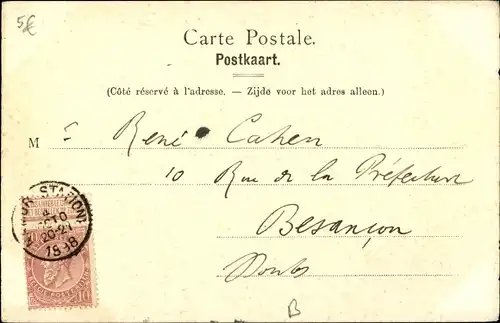 5€
Carte Postale.
Postkaart.
(Côté réservé à l'adresse. — Zijde voor het adres alleen.)
M r René Cahen
10 Rue de la Préfecture
Besançon
Doubs
STATION)
OCTO
20-21
1898
B